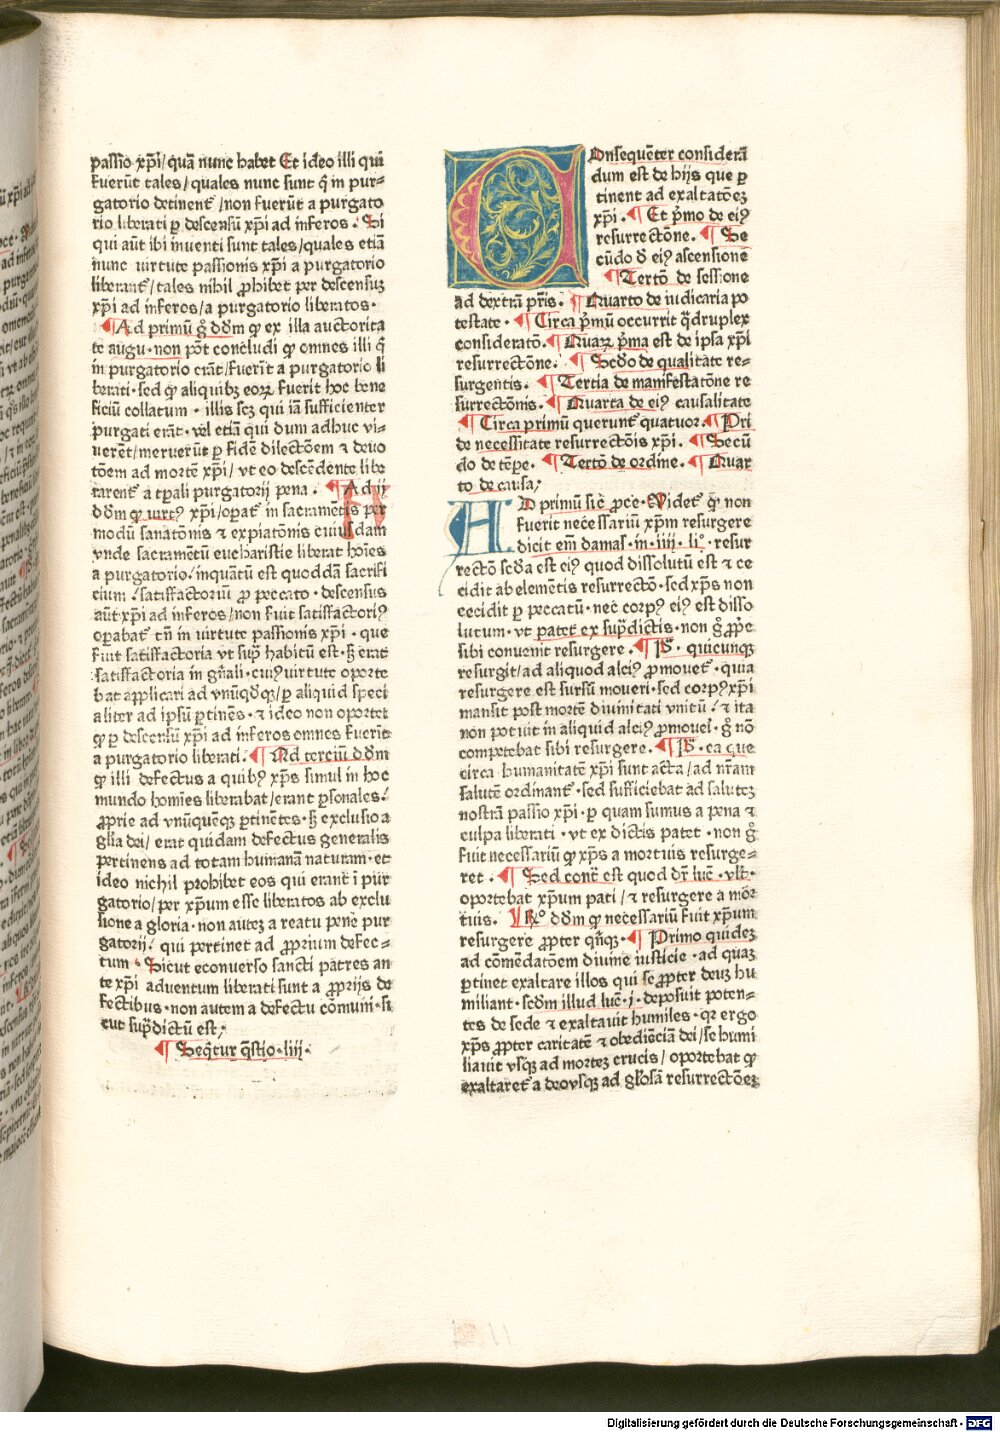 passio xp̄i/ quā nunc habet Et ideo illi qui
fuerūt tales/ quales nunc sunt q̄ in pur-
gatorio detinent̄/ non fuerūt a purgato
rio liberati ꝑ descensū xp̄i ad inferos. Si
qui aūt ibi inuenti sunt tales/ quales etiā
nunc virtute passionis xp̄i a purgatorio
liberant̄/ tales nihil ꝓhibet per descensuꝫ
xp̄i ad inferos/ a purgatorio liberatos.
¶ Ad primū g̊ dd̄m ꝙ ex illa auctorita
te augu. non pōt concludi ꝙ omnes illi q̄
in purgatorio erāt/ fuerīt a purgatorio li
berati. sed ꝙ aliquibꝫ eoꝝ fuerit hoc bene
ficiū collatum. illis scꝫ qui iā sufficienter
purgati erāt. vel etiā qui dum adhuc vi-
uerēt/ meruerūt ꝑ fidē dilectōem ⁊ deuo
tōem ad mortē xp̄i/ vt eo descēdente libe
rarent̄ a tꝑali purgatorij pena. ¶ Ad ij
dd̄m ꝙ virtꝰ xp̄i/ oꝑat̄ in sacramētis per
modū sanatōnis ⁊ expiatōnis cuiusdam
vnde sacramentū eucharistie liberat hoīes
a purgatorio/ inquātū est quoddā sacrifi
cium/ satisfactoriū ꝓ peccato. descensus
aūt xp̄i ad inferos/ non fuit satisfactoriꝰ
oꝑabat̄ tn̄ in virtute passionis xp̄i. que
fuit satisfactoria vt supͣ habitū est. sꝫ erat
satisfactoria in gn̄ali. cuiꝰ virtute oporte
bat applicari ad vnūqd̄ꝙ/ ꝑ aliquid speci
aliter ad ipsū ꝑtinēs. ⁊ ideo non oportet
ꝙ ꝑ descensū xp̄i ad inferos omnes fuerīt
a purgatorio liberati. ¶ Ad terciū dd̄m
ꝙ illi defectus a quibꝰ xp̄s simul in hoc
mundo homīes liberabat/ erant ꝑsonales/
ꝓprie ad vnūquēqꝫ ꝑtinētes. sꝫ exclusio a
gl̄ia dei/ erat quidam defectus generalis
pertinens ad totam humanā naturam. et
ideo nichil prohibet eos qui erant ī pur
gatorio/ per xp̄um esse liberatos ab exclu
sione a gloria. non auteꝫ a reatu pene pur
gatorij/ qui pertinet ad ꝓprium defec-
tum. Sicut econuerso sancti patres an
te xp̄i aduentum liberati sunt a ꝓprijs de
fectibus. non autem a defectu cōmuni. si
cut supͣdictū est/
¶ Seqt̄ur qstio. liij.
COnsequēter considerā
dum est de hijs que ꝑ
tinent ad exaltatōeꝫ
xp̄i. ¶ Et pͥmo de eiꝰ
resurrectōne. ¶ Se
cūdo d̄ eiꝰ ascensione
¶ Tertō de sessione
ad dextrā pr̄is. ¶ Quarto de iudicaria po
testate. ¶ Circa pͥmū occurrit qͣdruplex
consideratō. ¶ Quaꝝ pͥma est de ipsa xp̄i
resurrectōne. ¶ Scd̄o de qualitate re-
surgentis. ¶ Tertia de manifestatōne re
surrectōnis. ¶ Quarta de eiꝰ causalitate
¶ Circa primū querunt̄ quatuor. ¶ Pri
de necessitate resurrectōis xp̄i. ¶ Secū
do de tēꝑe. ¶ Tertō de ordine. ¶ Quar
to de causa/
AD primū sic̄ ꝓce. Videt̄ ꝙ non
fuerit necessariū xp̄m resurgere
dicit em̄ damas. in. iiij. liº. resur
rectō scd̄a est eiꝰ quod dissolutū est ⁊ ce
cidit ab elementis resurrectō. sed xp̄s non
cecidit ꝑ peccatū. nec corpꝰ eiꝰ est disso
lutum. vt patet ex supͣdictis. non g̊ ꝓpͥe
sibi conuenit resurgere. ¶ P̄. quicunqꝫ
resurgit/ ad aliquod alciꝰ ꝓmouet̄. quia
resurgere est sursū moueri. sed corpꝰ xp̄i
mansit post mortē diuinitati vnitū/ ⁊ ita
non potuit in aliquid alciꝰ ꝓmoueri. g̊ nō
competebat sibi resurgere. ¶ P̄. ea que
circa humanitatē xp̄i sunt acta/ ad nr̄am
salutē ordinant̄. sed sufficiebat ad saluteꝫ
nostrā passio xp̄i. ꝑ quam sumus a pena ⁊
culpa liberati. vt ex dictis patet. non g̊
fuit necessariū ꝙ xp̄s a mortuis resurge-
ret. ¶ Sed contͣ est quod dr̄ luc̄. vlt̄.
oportebat xp̄um pati/ ⁊ resurgere a mor
tuis. ¶ Rº. dd̄m ꝙ necessariū fuit xp̄um
resurgere ꝓpter qn̄qꝫ. ¶ Primo quideꝫ
ad cōmēdatōem diuine iusticie. ad quaꝫ
ꝑtinet exaltare illos qui se ꝓpter deuꝫ hu
miliant. scd̄m illud luc̄. j. deposuit poten-
tes de sede ⁊ exaltauit humiles. qꝛ ergo
xp̄s ꝓpter caritatē ⁊ obediēciā dei/ se humi
liauit vsqꝫ ad morteꝫ crucis/ oportebat ꝙ
exaltaret̄ a deo vsqꝫ ad gl̄osā resurrectōeꝫ
Digitalisierung gefördert durch die Deutsche Forschungsgemeinschaft - DFG